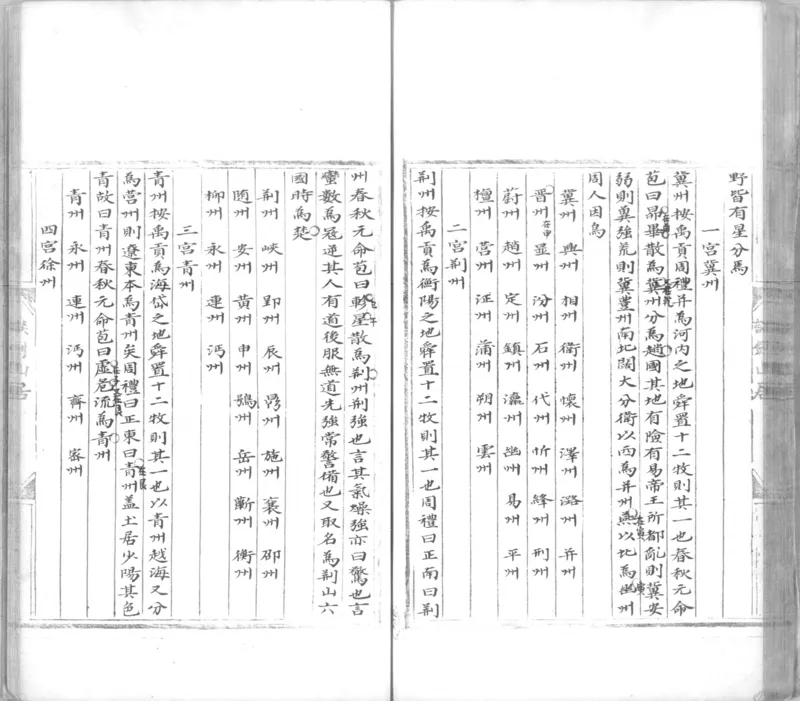 野皆有星分馬
一宮冀州
冀州按禹貢周禮并為河内之地舜置十二牧則其一也春秋元命
苞曰昴畢散為冀州分為趙國其地有險有易帝王所都亂則冀安
弱則冀強荒則冀豊州南北闊大分衛以西為并州燕以北為幽州
周人因焉
冀州 興州 相州 衛州 懷州 澤州 潞州 并州
晉州 在申 显州 汾州 石州 代州 忻州 絳州 刑州
蔚州 趙州 定州 鎮州 瀛州 幽州 易州 平州
檀州 營州 㴀州 蒲州 朔州 雲州
二宮荆州
荆州按禹貢為衡陽之地舜置十二牧則其一也周禮曰正南曰荆
州春秋元命苞曰軫星散為荆州荆強也言其氣燥強亦曰驚也言
蠻數為冦逆其人有道後服無道先強常警備也又取名為荆山六
國時為楚
荆州 峽州 郢州 辰州 施州 襄州
随州 安州 黄州 申州 鄂州 岳州 蘄州 衡州
柳州 永州 連州 沔州
三宮青州
青州按禹貢為海岱之地舜置十二牧則其一也以青州越海又分
為营州則遼東本為青州矣周禮曰正東曰青州盖土居少陽其色
青故曰青州春秋元命苞曰虚危流為青州
青州 永州 連州 沔州 齊州 密州
四宮徐州